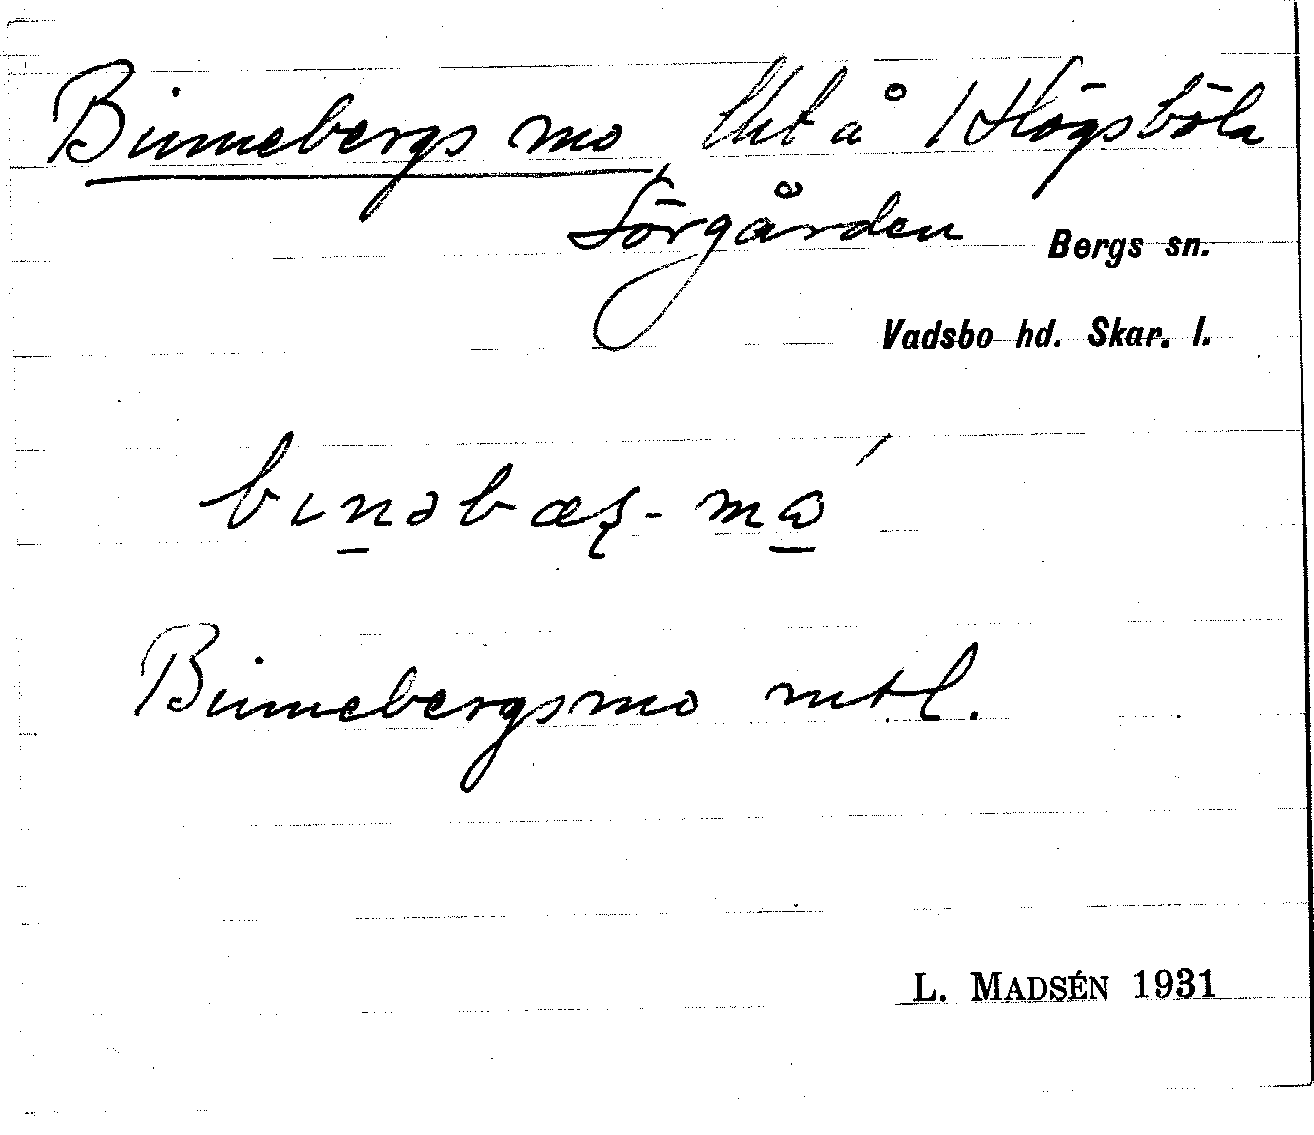 Binnebergs mo, lht å 1 Högsböla
Sörgården Bergs sn.
Vadsbo hd. Skar. l.
Binnebergsmo mtl.
L. MADSÉN 1931